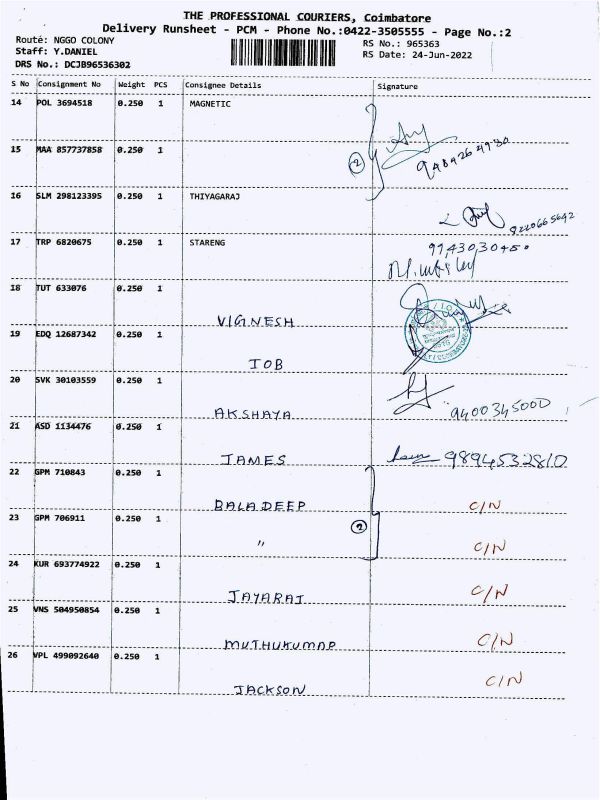 THE PROFESSIONAL COURIERS, Coimbatore
Delivery Runsheet - PCM - Phone No.:0422-3505555 - Page No.:2
Route: NGGO COLONY
Staff: Y.DANIEL
DRS No.: DCJB96536302
RS No.: 965363
RS Date: 24-Jun-2022
S No Consignment No Weight PCS Consignee Details Signature
14 POL 3694518 0.250 1 MAGNETIC
15 MAA 857737858 0.250 1
② 9484264930
16 SLM 298123395 0.250 1 THIYAGARAJ
9220665642
17 TRP 6820675 0.250 1 STARENG
9943030450
18 TUT 633076 0.250 1
VIGNESH
19 EDQ 12687342 0.250 1
JOB
20 SVK 30103559 0.250 1
AKSHAYA 9400345000
21 ASD 1134476 0.250 1
JAMES 9894532810
22 GPM 710843 0.250 1
BALADEEP C/N
23 GPM 706911 0.250 1 ②
〃 C/N
24 KUR 693774922 0.250 1
JAYARAJ C/N
25 VNS 504950854 0.250 1
MUTHUKUMAR C/N
26 VPL 499092640 0.250 1
JACKSON C/N